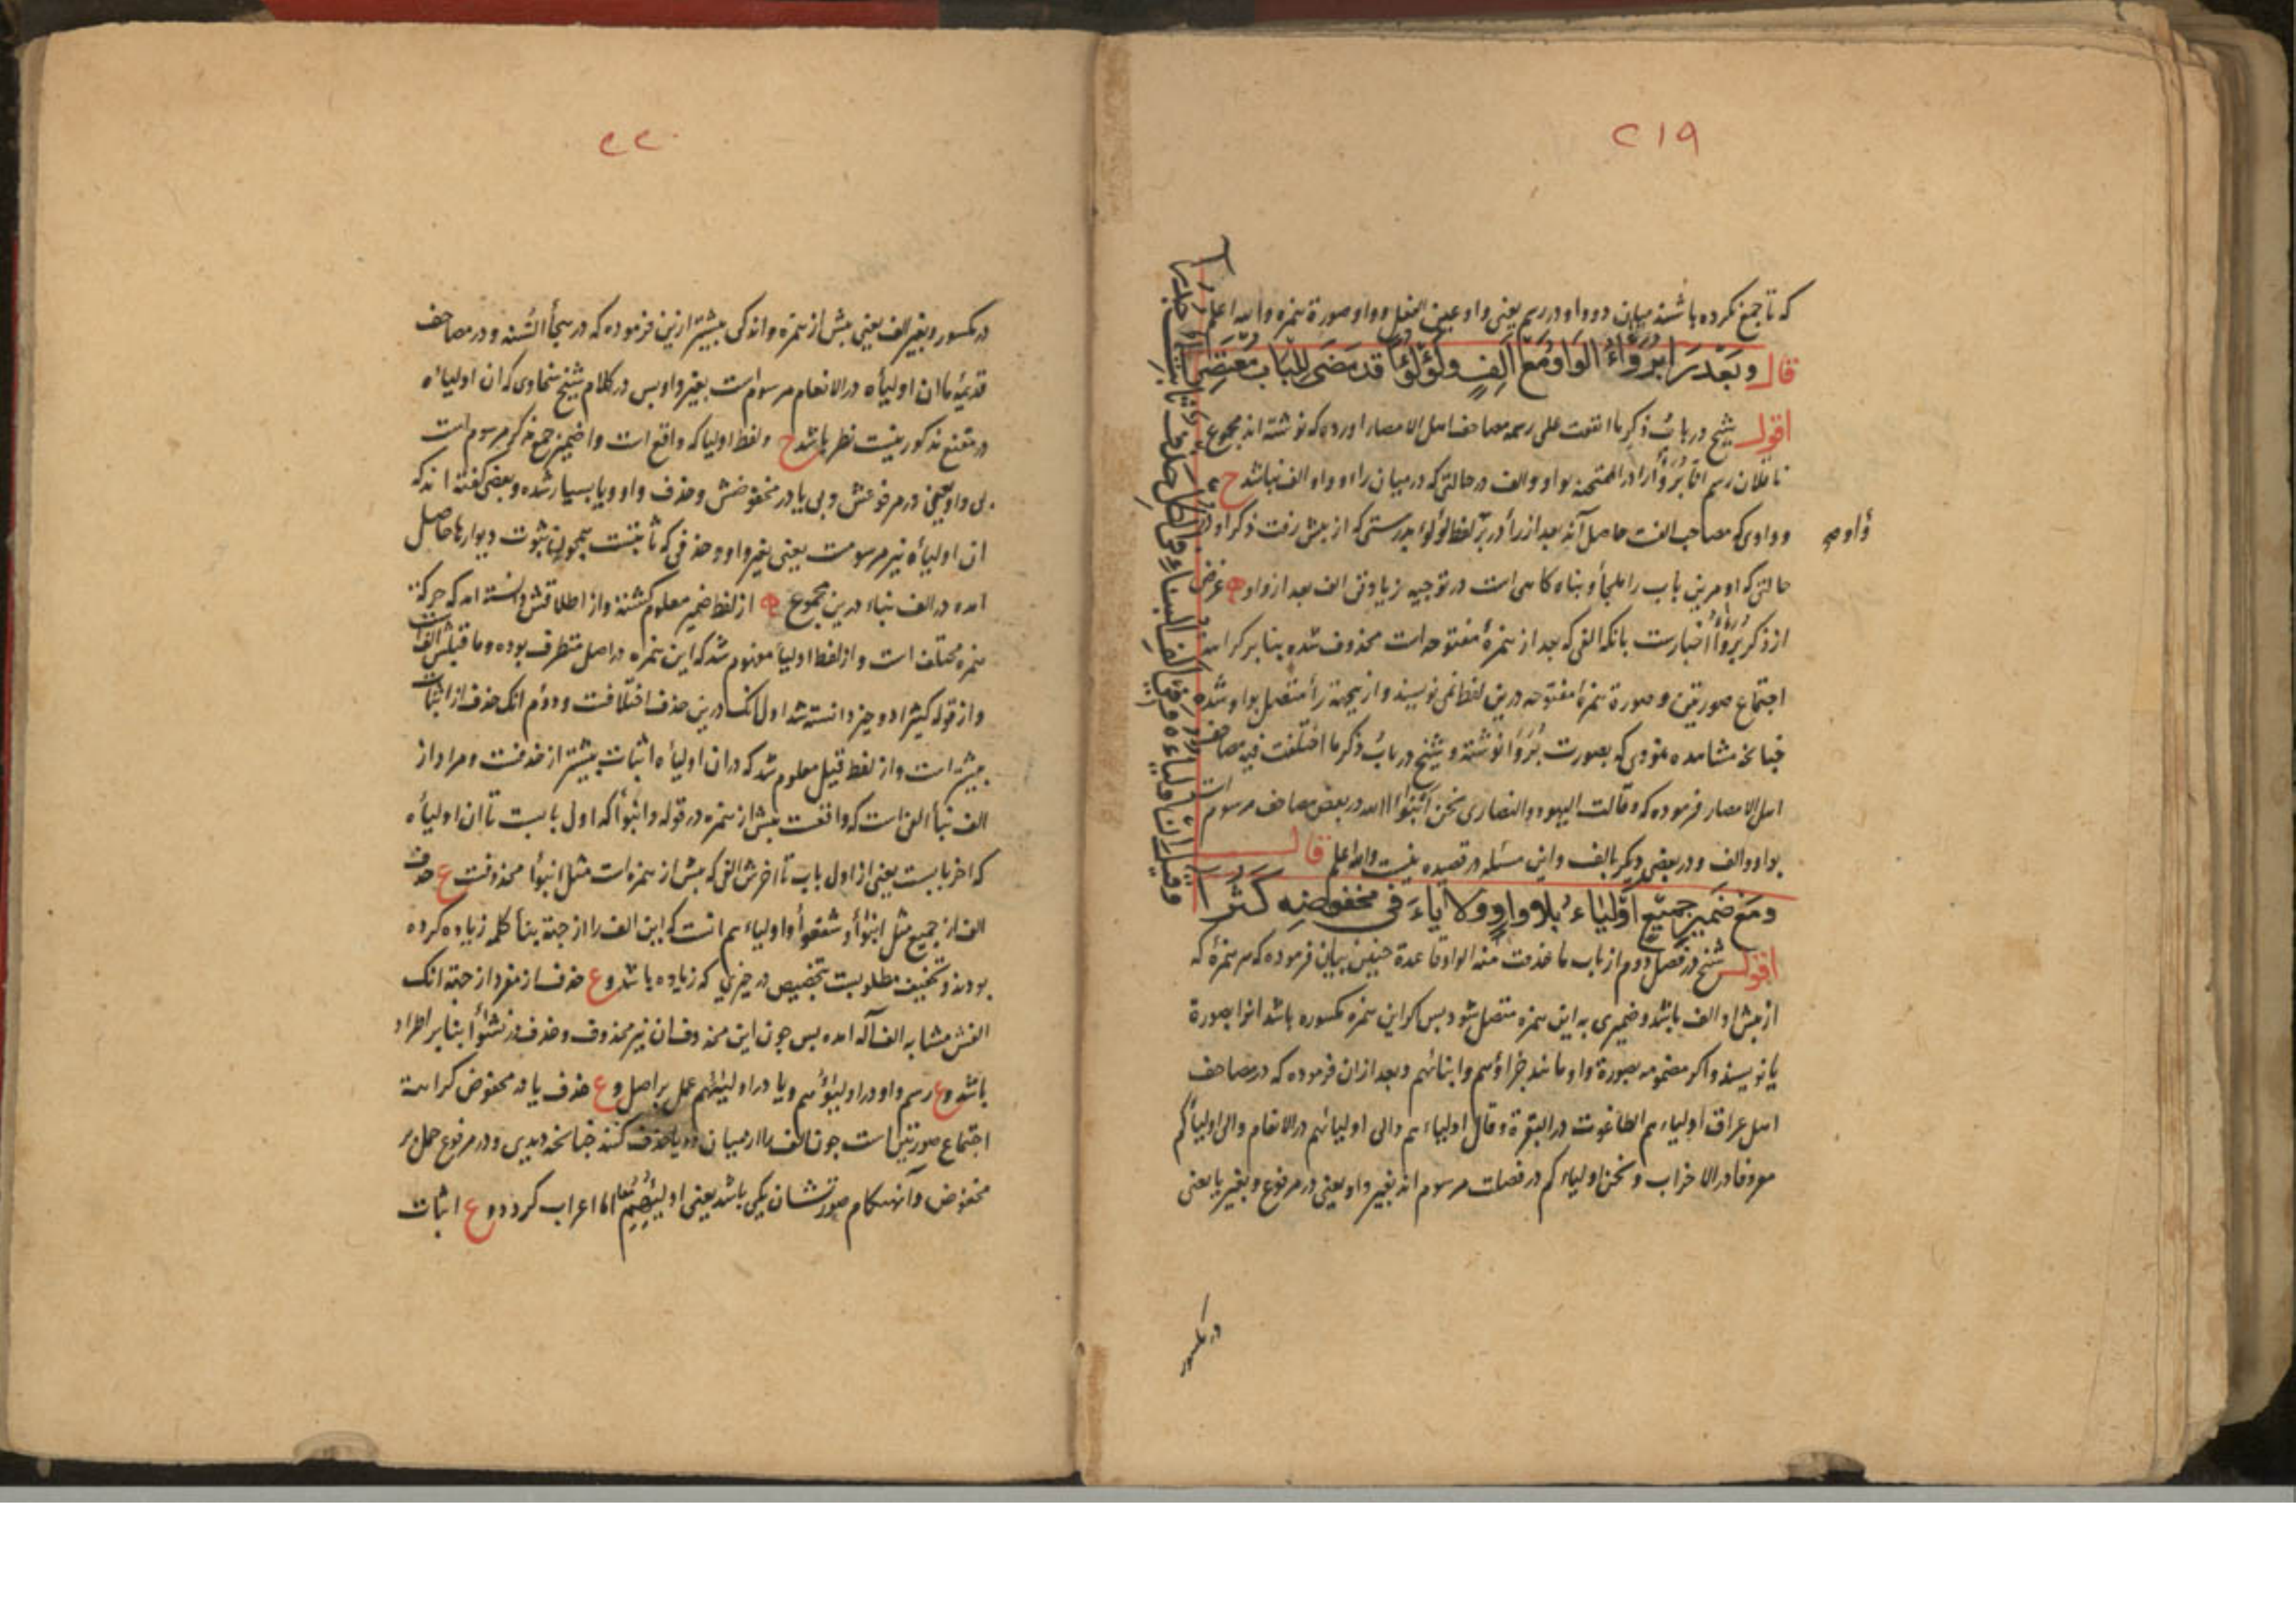 ٢١٩
که تا جمع نکرده باشند میان دو واو در رسم یعنی واو عین الفعل و واو صورة همزه والله اعلم
قال وبعد را برؤاء الواو مع الف ولؤلؤا قد مضى للباب معتصرا
اقول شیخ در باب ذکر ما اتفقت على رسمه مصاحف اهل الامصار اورده که نوشته اند مجموع
ناقلان رسم انا برؤا را در الممتحنه بواو والف در حالتی که در میان راء و واو الف نباشد ح
و واوی که مصاحب الفت حاصل آید بعد از راء در لفظ لؤلؤا بدرستی که از پیش رفت ذکر او در
حالتی که او مرین باب را ملجأ و پناه کاهی است در توجیه زیادتی الف بعد از واو غرض
از ذکر برؤا اخبارست بانکه الفی که بعد از همزهٔ مفتوحه است محذوف شده بنا بر کراهت
اجتماع صورتین و صورة همزهٔ مفتوحه درین لفظ نمی نویسند و ازیجهة راء متصل بواو شده
چنانخه مشاهده نمودی که بصورت برؤا نوشته و شیخ در باب ذکر ما اختلفت فیه مصاحف
اهل الامصار فرموده که وقالت الیهود والنصاری نحن ابنؤا الله در بعض مصاحف مرسوم است
بواو والف و در بعضی دیکر بالف واین مسئله در قصیده نیست والله اعلم قال
ومع ضمیر جمیع اولیاء بلا واو ولا یاء فی مخفوضه کثرا
وقیل ان اولیاءه وفی الف البناء فی الکل حذف ثابت جدرا
اقول شیخ در فصل دوم از باب ما حذفت منه الواو قاعدة چنین بیان فرموده که هر همزهٔ که
از پیش او الف باشد و ضمیری به این همزه متصل شود پس کر این همزه مکسوره باشد انرا بصورة
یا نویسند و اکر مضمومه بصورة واو مانند جزاؤهم وابنائهم و بعد ازان فرموده که در مصاحف
اهل عراق اولیاءهم الطاغوت در البقرة وقال اولیاءهم والی اولیائهم در الانعام والی اولیائکم
معروفا در الاحزاب و نحن اولیاءکم در فصلت مرسوم اند بغیر واو یعنی در مرفوع و بغیر یا یعنی
در مکسور
٢٢٠
در مکسور و بغیر الف یعنی پیش از همزه و اندکی پیشتر ازین فرموده که در هجاء السنه و در مصاحف
قدیمه ما ان اولیاءه در الانفال مرسوم است بغیر واو پس در کلام شیخ سخاوی که ان اولیاءه
در مقنع مذکور نیست نظر باشد ح و لفظ اولیا که واقع است واضمیر جمع مذکر مرسوم است
بی واو یعنی در مرفوعش و بی یا در مخفوضش و حذف واو و یا بسیار شده و بعضی کفته اند که
ان اولیاءه نیز مرسومست یعنی بغیر واو و حذفی که ثابتست همچون ثبوت دیوارها حاصل
امده در الف بناء درین مجموع از لفظ ضمیر معلوم کشته و از اطلاقش دانسته امد که حرکهٔ
همزه مختلف است و از لفظ اولیاء مفهوم شد که این همزه در اصل متطرف بوده و ما قبلش الفست
و از قوله کثیرا دو چیز دانسته شد اول انک درین حذف اختلافست و دوم انک حذف از اثبات
بیشتر است و از لفظ قیل معلوم شد که در ان اولیاءه اثبات بیشتر از حذفست و مراد از
الف بنا الفی است که واقعست پیش از همزه در قوله و انبؤا که اول بابست تا ان اولیاءه
که اخر بابست یعنی از اول باب تا اخرش الفی که پیش از همزه است مثل انبؤا محذوفست ع حذف
الف از جمیع مثل ابنؤا و شفعؤا و اولیاءهم انست که این الف را از جهة بناء کلمه زیاده کرده
بودند و تخفیف مطلوبست بتخصیص در چیزی که زیاده باشد و ع حذفش از مفرد از جهة انک
الفش مشابه الف آله امده پس چون این محذوفست ان نیز محذوف و حذف در نشؤا بنا بر اطراد
باشد و ع رسم واو در اولیؤهم و یا در اولیئهم عمل بر اصل و ع حذف یا در مخفوض کراهة
اجتماع صورتین است چون الف را از میان دو یا حذف کنند چنانخه دیدی و در مرفوع حمل بر
مخفوض و آنهنکام صورتشان یکی باشد یعنی اولیئهم اما اعراب کرد دو ع اثبات